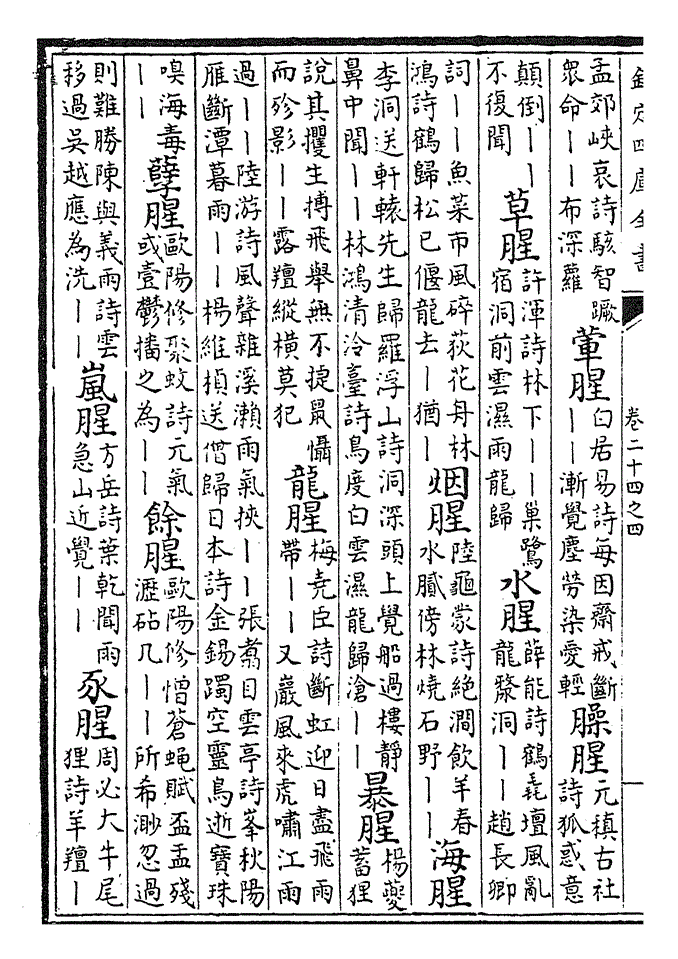 欽定四庫全書
卷二十四之四
孟郊峽哀詩駭智蹶
衆命〡〡布深蘿
葷腥
白居易詩每因齋戒斷
〡〡漸覺塵勞染愛輕
臊腥
元稹古社
詩狐惑意
顛倒〡〡
不復聞
草腥
許渾詩林下〡〡巢鷺
宿洞前雲濕雨龍歸
水腥
薛能詩鶴毳壇風亂
龍漦洞〡〡趙長卿
詞〡〡魚菜市風碎荻花舟林
鴻詩鶴歸松已偃龍去〡猶〡
烟腥
陸龜蒙詩絕澗飲羊春
水膩傍林燒石野〡〡
海腥
李洞送軒轅先生歸羅浮山詩洞深頭上覺船過樓靜
鼻中聞〡〡林鴻清泠臺詩鳥度白雲濕龍歸滄〡〡
暴腥
楊夔
蓄狸
說其攫生搏飛舉無不捷鼠懾
而殄影〡〡露羶縱橫莫犯
龍腥
梅堯臣詩斷虹迎日盡飛雨
帶〡〡又巖風來虎嘯江雨
過〡〡陸游詩風聲雜溪瀨雨氣挾〡〡張翥目雲亭詩峯秋陽
雁斷潭暮雨〡〡楊維楨送僧歸日本詩金錫躅空靈鳥逝寶珠
嗅海毒
〡〡
孽腥
歐陽修聚蚊詩元氣
或壹鬱播之為〡〡
餘腥
歐陽修憎蒼蝇賦盃盂殘
瀝砧几〡〡所希渺忽過
則難勝陳與義雨詩雲
移過吳越應為洗〡〡
嵐腥
方岳詩葉乾聞雨
急山近覺〡〡
豕腥
周必大牛尾
狸詩羊羶〡